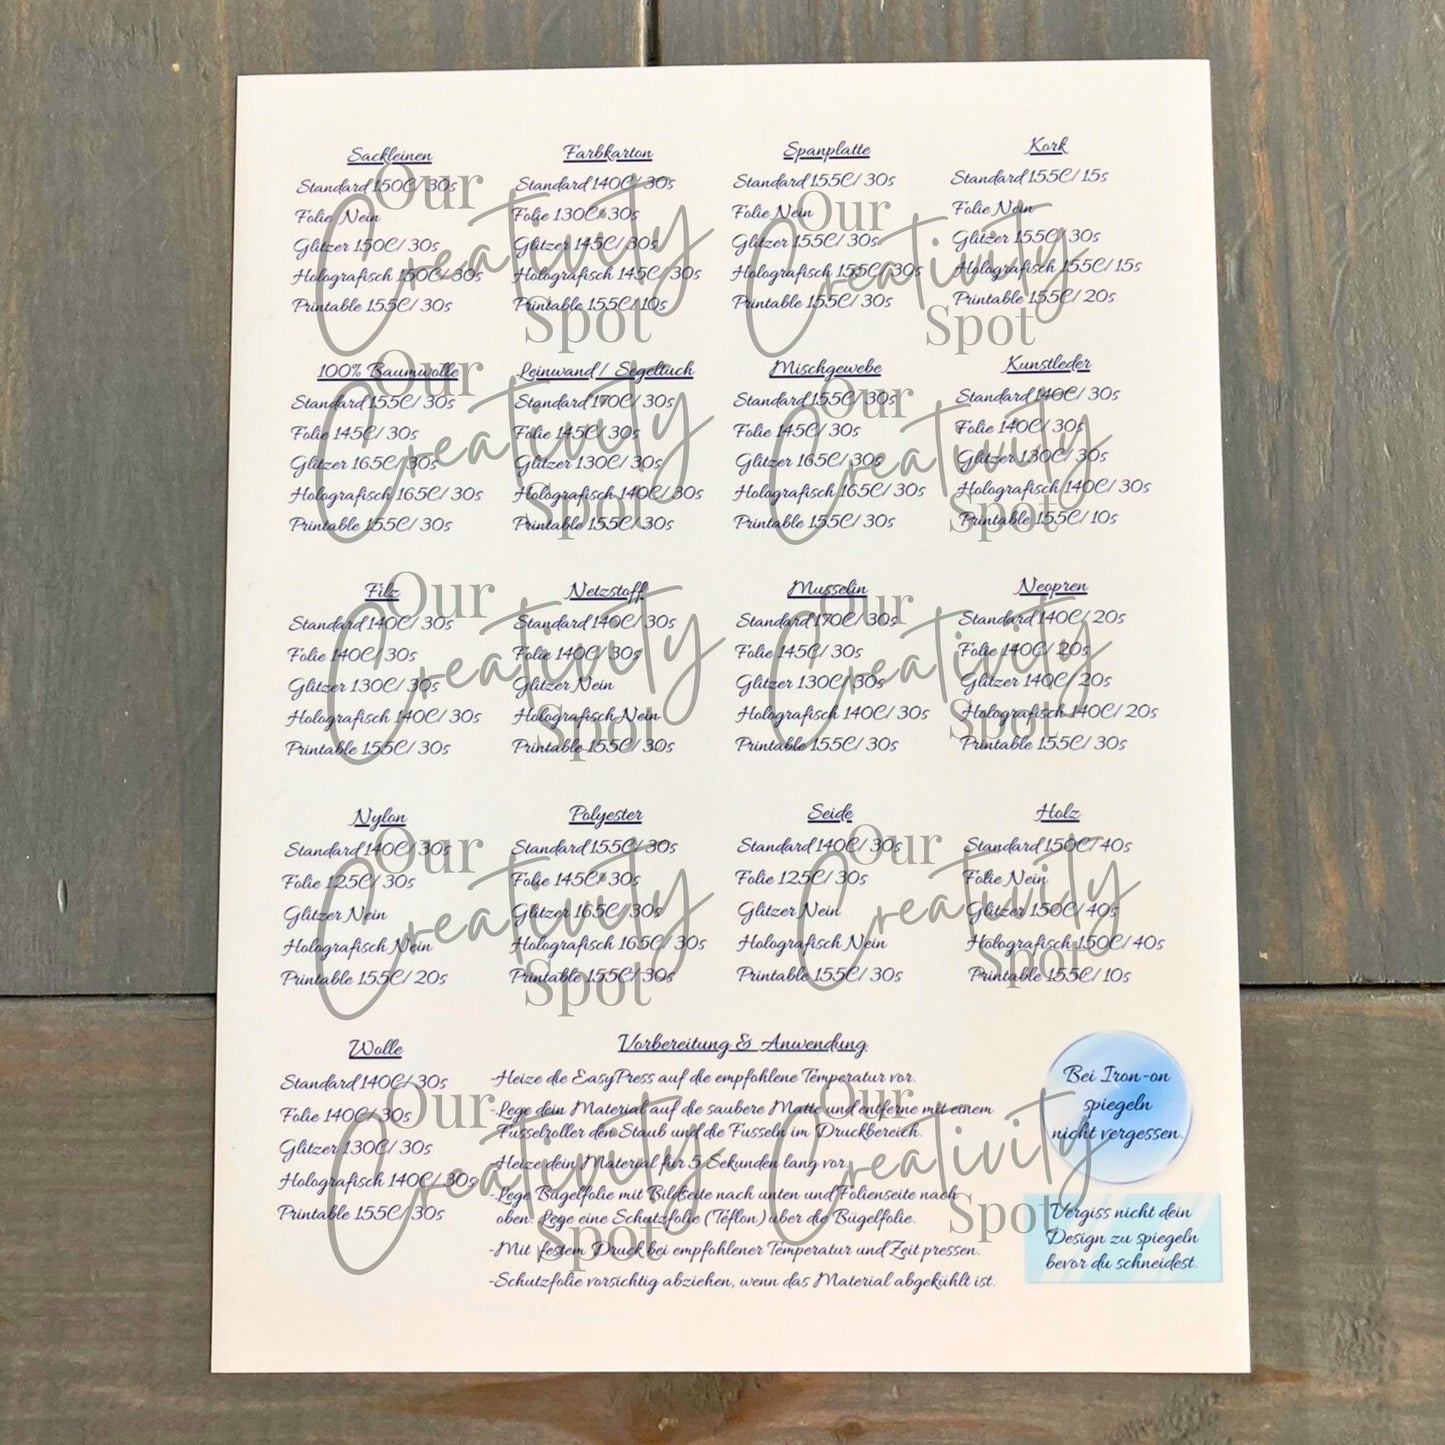 Sackleinen
Standard 150C/ 30s
Folie Nein
Glitzer 150C/ 30s
Holografisch 150C/ 30s
Printable 155C/ 30s
Farbkarton
Standard 140C/ 30s
Folie 130C/ 30s
Glitzer 145C/ 30s
Holografisch 145C/ 30s
Printable 155C/ 10s
Spanplatte
Standard 155C/ 30s
Folie Nein
Glitzer 155C/ 30s
Holografisch 155C/ 30s
Printable 155C/ 30s
Kork
Standard 155C/ 15s
Folie Nein
Glitzer 155C/ 30s
Holografisch 155C/ 15s
Printable 155C/ 20s
Our
Creativity
Spot
Our
Creativity
Spot
100% Baumwolle
Standard 155C/ 30s
Folie 145C/ 30s
Glitzer 165C/ 30s
Holografisch 165C/ 30s
Printable 155C/ 30s
Leinwand / Segeltuch
Standard 170C/ 30s
Folie 145C/ 30s
Glitzer 130C/ 30s
Holografisch 140C/ 30s
Printable 155C/ 30s
Mischgewebe
Standard 155C/ 30s
Folie 145C/ 30s
Glitzer 165C/ 30s
Holografisch 165C/ 30s
Printable 155C/ 30s
Kunstleder
Standard 140C/ 30s
Folie 140C/ 30s
Glitzer 130C/ 30s
Holografisch 140C/ 30s
Printable 155C/ 10s
Our
Creativity
Spot
Our
Creativity
Spot
Filz
Standard 140C/ 30s
Folie 140C/ 30s
Glitzer 130C/ 30s
Holografisch 140C/ 30s
Printable 155C/ 30s
Netzstoff
Standard 140C/ 30s
Folie 140C/ 30s
Glitzer Nein
Holografisch Nein
Printable 155C/ 30s
Musselin
Standard 170C/ 30s
Folie 145C/ 30s
Glitzer 130C/ 30s
Holografisch 140C/ 30s
Printable 155C/ 30s
Neopren
Standard 140C/ 20s
Folie 140C/ 20s
Glitzer 140C/ 20s
Holografisch 140C/ 20s
Printable 155C/ 30s
Our
Creativity
Spot
Our
Creativity
Spot
Nylon
Standard 140C/ 30s
Folie 125C/ 30s
Glitzer Nein
Holografisch Nein
Printable 155C/ 20s
Polyester
Standard 155C/ 30s
Folie 145C/ 30s
Glitzer 165C/ 30s
Holografisch 165C/ 30s
Printable 155C/ 30s
Seide
Standard 140C/ 30s
Folie 125C/ 30s
Glitzer Nein
Holografisch Nein
Printable 155C/ 30s
Holz
Standard 150C/ 40s
Folie Nein
Glitzer 150C/ 40s
Holografisch 150C/ 40s
Printable 155C/ 10s
Our
Creativity
Spot
Our
Creativity
Spot
Wolle
Standard 140C/ 30s
Folie 140C/ 30s
Glitzer 130C/ 30s
Holografisch 140C/ 30s
Printable 155C/ 30s
Vorbereitung & Anwendung
-Heize die EasyPress auf die empfohlene Temperatur vor.
-Lege dein Material auf die saubere Matte und entferne mit einem
Fusselroller den Staub und die Fusseln im Druckbereich.
-Heize dein Material für 5 Sekunden lang vor
-Lege Bügelfolie mit Bildseite nach unten und Folienseite nach
oben. Lege eine Schutzfolie (Teflon) über die Bügelfolie.
-Mit festem Druck bei empfohlener Temperatur und Zeit pressen.
-Schutzfolie vorsichtig abziehen, wenn das Material abgekühlt ist.
Bei Iron-on
spiegeln
nicht vergessen.
Vergiss nicht dein
Design zu spiegeln
bevor du schneidest.
Our
Creativity
Spot
Our
Creativity
Spot